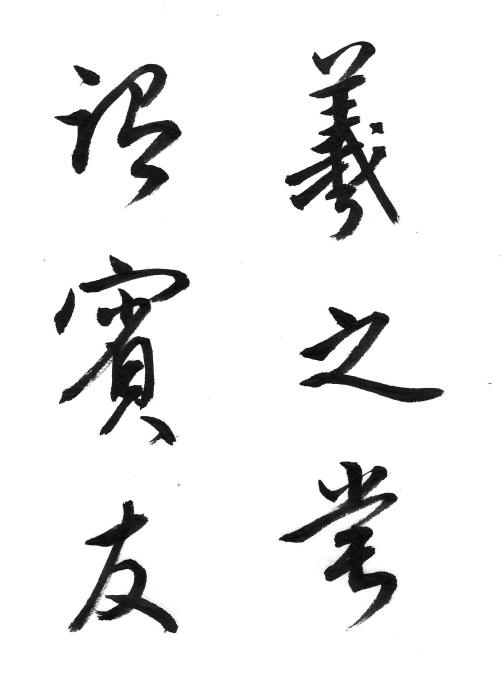 羲之嘗
謂賓友